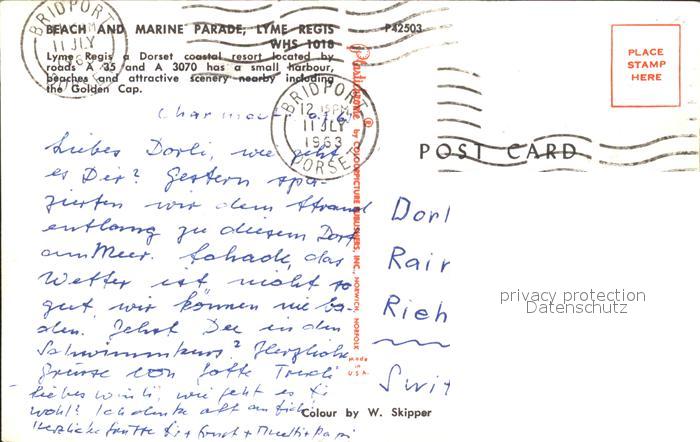 BRIDPORT
11 JLY
BEACH AND MARINE PARADE, LYME REGIS
P42503
WHS 1018
Lyme Regis a Dorset coastal resort located by
roads A 35 and A 3070 has a small harbour,
beaches and attractive scenery nearby including
the Golden Cap.
PLACE
STAMP
HERE
BRIDPORT
12 15 PM
11 JLY
1963
DORSET
Plastichrome ® by COLOURPICTURE PUBLISHERS, INC., NORWICH, NORFOLK
Made
in
U.S.A.
POST CARD
Liebes Dorli, wie geht
es Dir? Gestern spa-
zierten wir dem Strand
entlang zu diesem Dorf
am Meer. Schade, das
Wetter ist nicht so
gut, wir können nie ba-
den. Gehst Du in den
Schwimmkurs? Herzliche
Grüsse von Gotte Trudi
Liebes wie geht es
wohl? Ich denke oft an
Herzliche + +
Dorl
Rair
Rieh
Swit
privacy protection
Datenschutz
Colour by W. Skipper